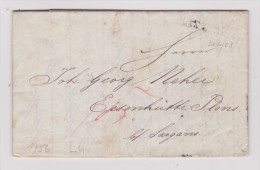 Herrn
Joh. Georg Neher
Eisenhütte Plons
b/ Sargans